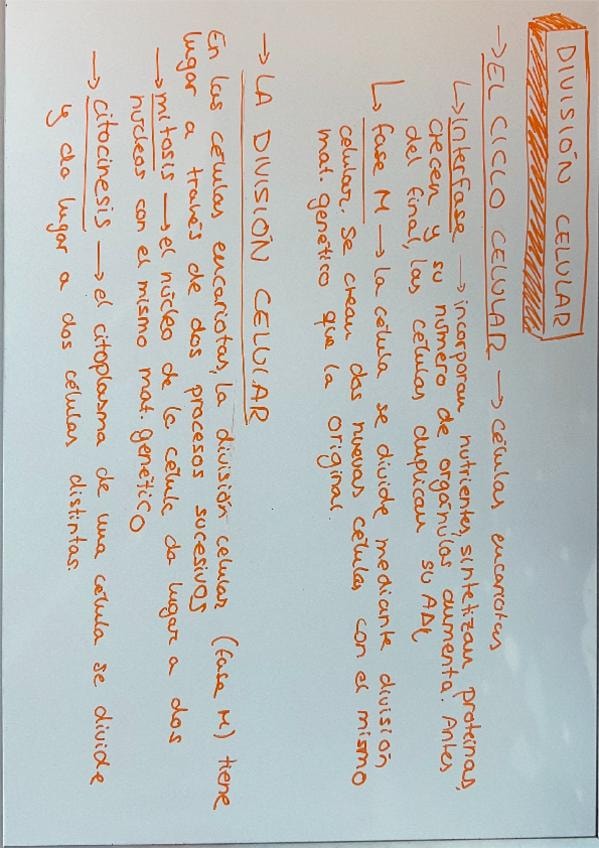 DIVISIÓN CELULAR
→ EL CICLO CELULAR → células eucariotas
↳ interfase → incorporan nutrientes, sintetizan proteínas,
crecen y su número de orgánulos aumenta. Antes
del final, las células duplican su ADN
↳ fase M → la célula se divide mediante división
celular. Se crean dos nuevas células con el mismo
mat. genético que la original.
→ LA DIVISIÓN CELULAR
En las células eucariotas, la división celular (fase M) tiene
lugar a través de dos procesos sucesivos
→ mitosis → el núcleo de la célula da lugar a dos
núcleos con el mismo mat. genético
→ citocinesis → el citoplasma de una célula se divide
y da lugar a dos células distintas.